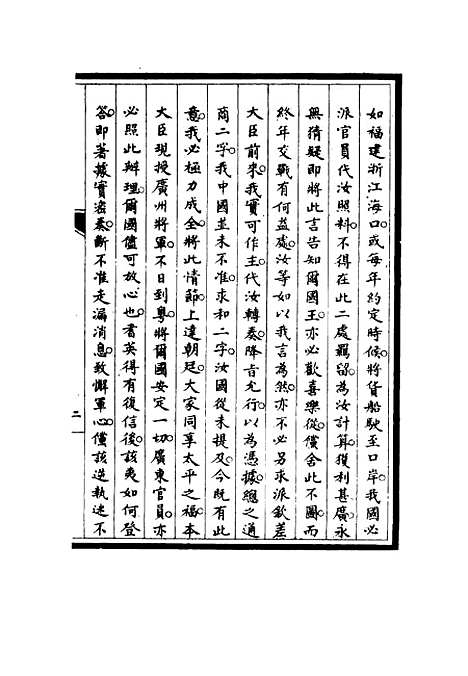 如福建浙江海口。或每年約定時候。將貨船駛至口岸。我國必
派官員代汝照料。不得在此二處羈留。為汝計算。獲利甚廣。永
無猜疑。即將此言告知爾國王。亦必歡喜樂從。儻舍此不圖。而
終年交戰。有何益處。汝等如以我言為然。亦不必另求派欽差
大臣前來。我實可作主。代汝轉奏。降旨允行。以為憑據。總之通
商二字。我中國並未不准。求和二字。汝國從未提及。今既有此
意。我必極力成全。將此情節。上達朝廷。大家同享太平之福。本
大臣現授廣州將軍。不日到粵。將爾國安定一切。廣東官員。亦
必照此辦理。爾國儘可放心也。耆英得有復信後。該夷如何登
答。即著據實密奏。斷不准走漏消息。致懈軍心。儻該逆執迷不
二